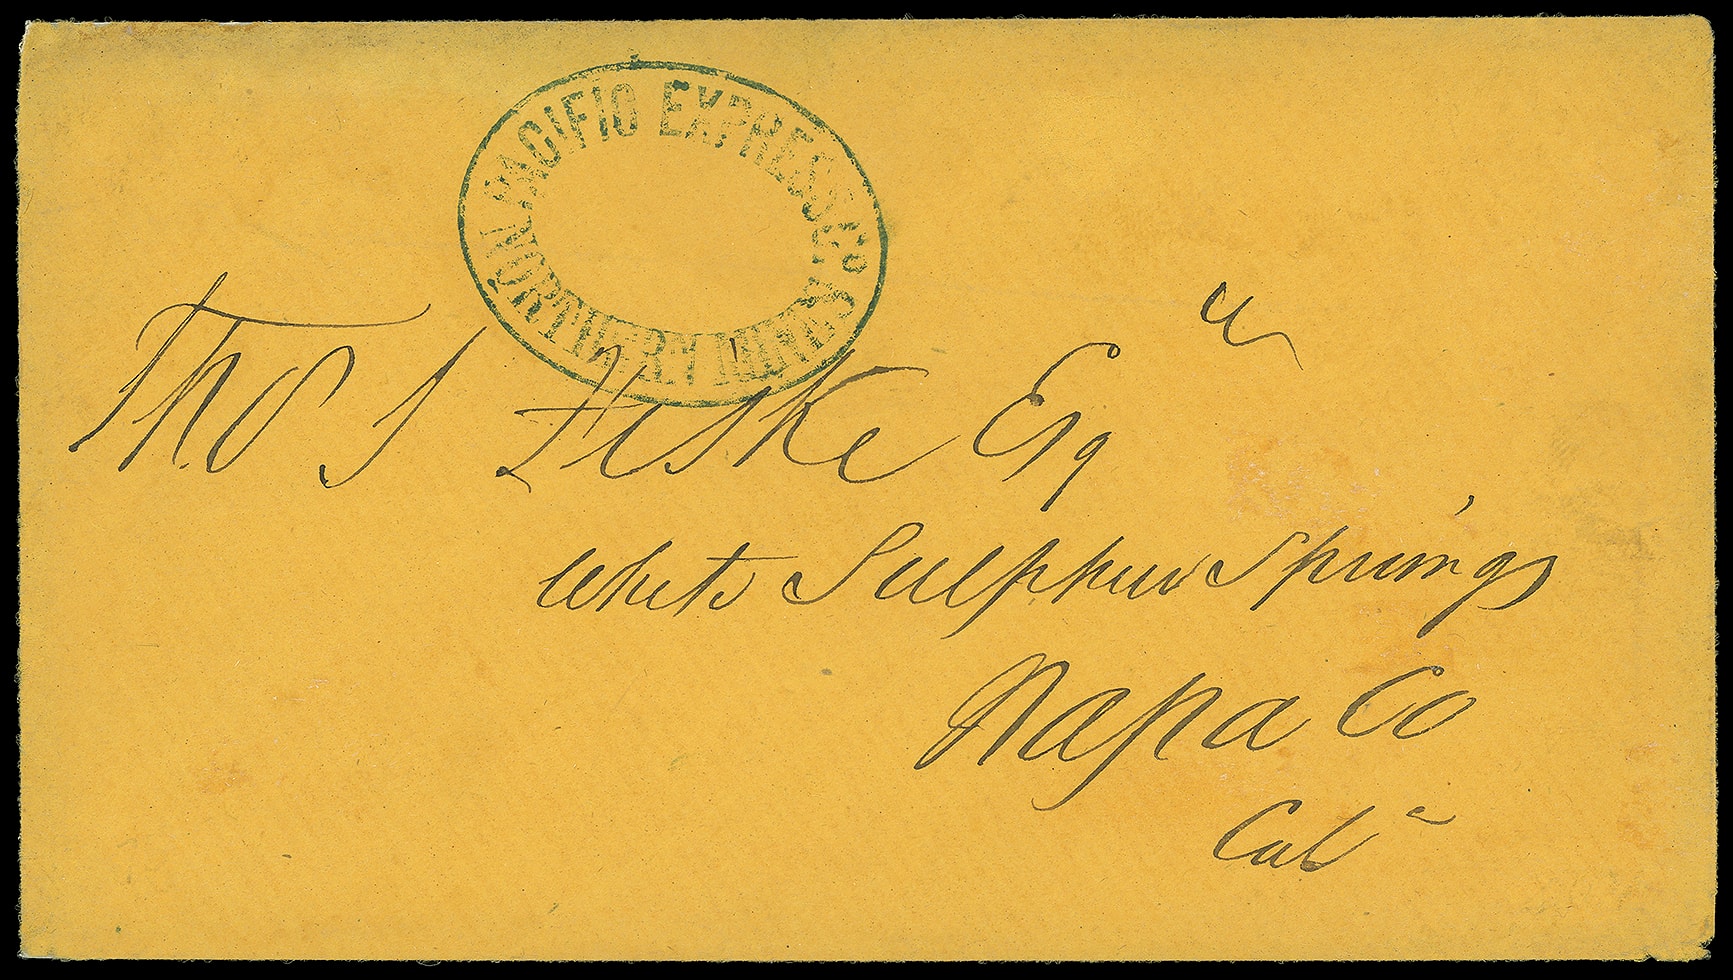 PACIFIC EXPRESS Co.
NORTHERN MINES
Thos S Fiske Esq
White Sulphur Springs
Napa Co
Cal